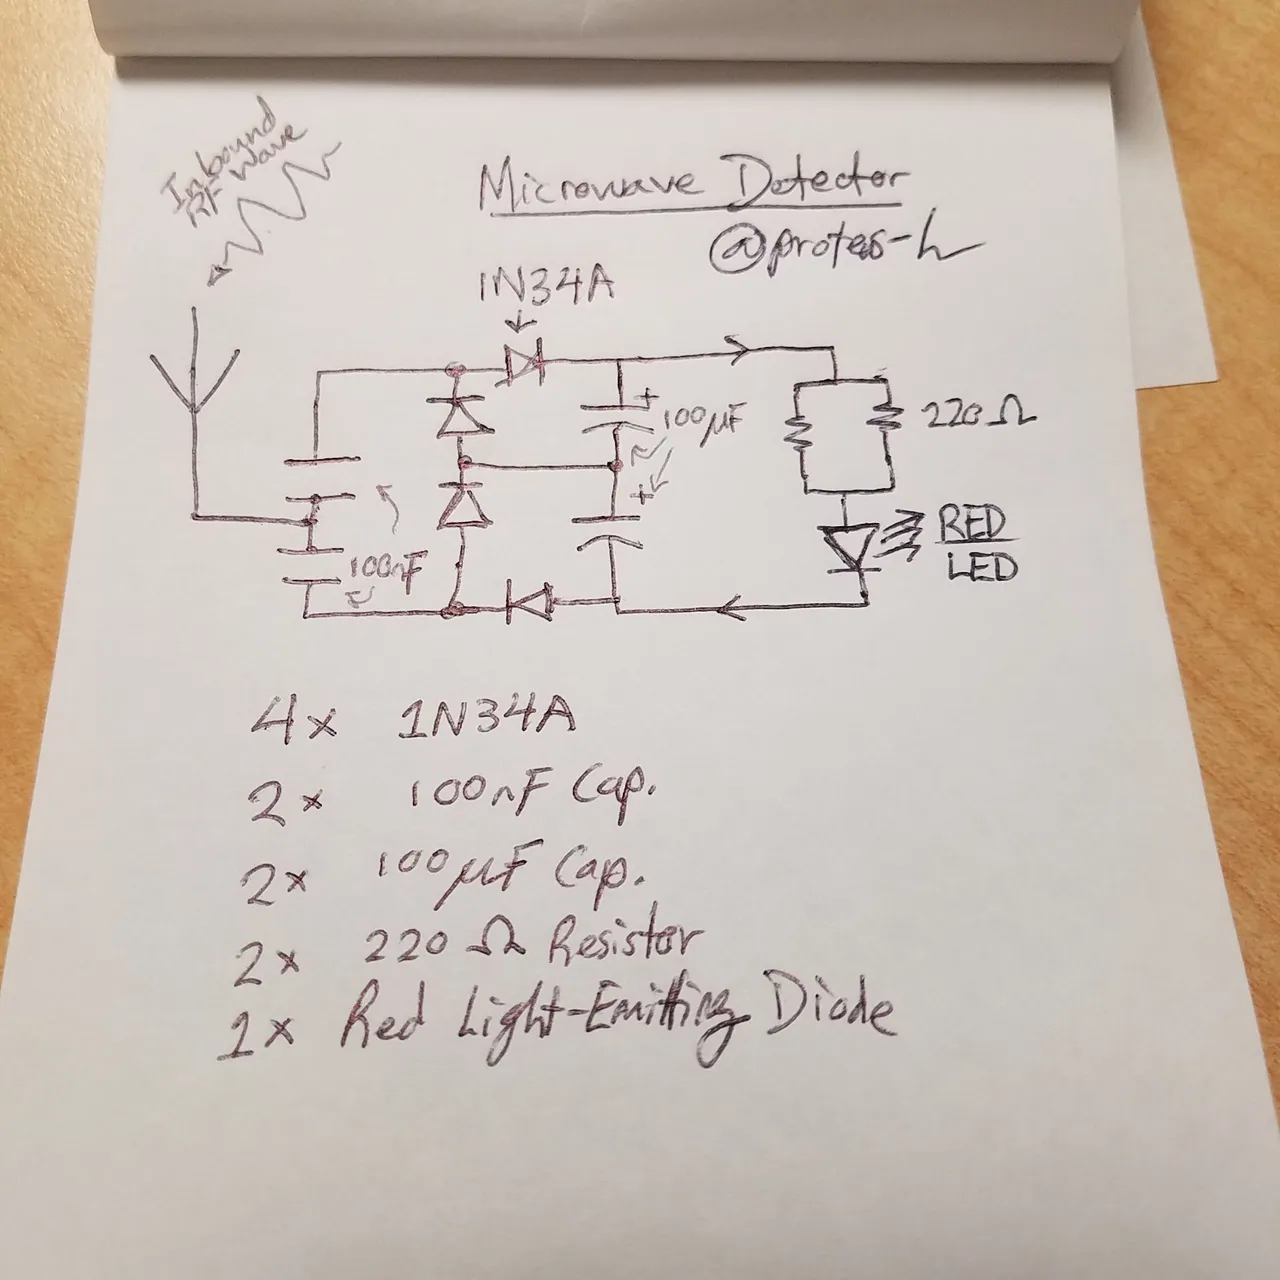 Inbound
RF Wave
Microwave Detector
@proteus-h
1N34A
+
100µF
+
220Ω
100nF
RED
LED
4x 1N34A
2x 100nF Cap.
2x 100µF Cap.
2x 220 Ω Resistor
1x Red Light-Emitting Diode